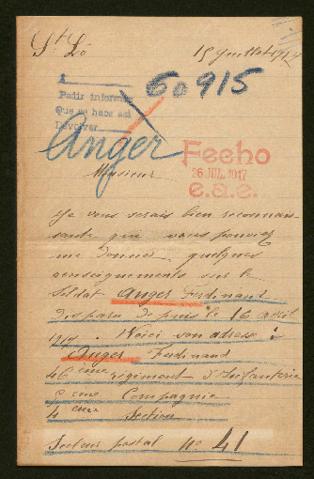 St Lô 15 Juillet 1917
A
60915
Pedir informe
Que se hace así
Devolver
Anger
Fecho
26 JUL. 1917
e.a.e.
Monsieur
Je vous serais bien reconnais
sante que vous pouviez
me donner quelques
renseignements sur le
Soldat Anger Ferdinand
disparu depuis le 16 avril
1917. Voici son adresse :
Anger Ferdinand
46 ème régiment d'Infanterie
ème Compagnie
4 ème Section
Secteur postal no 41